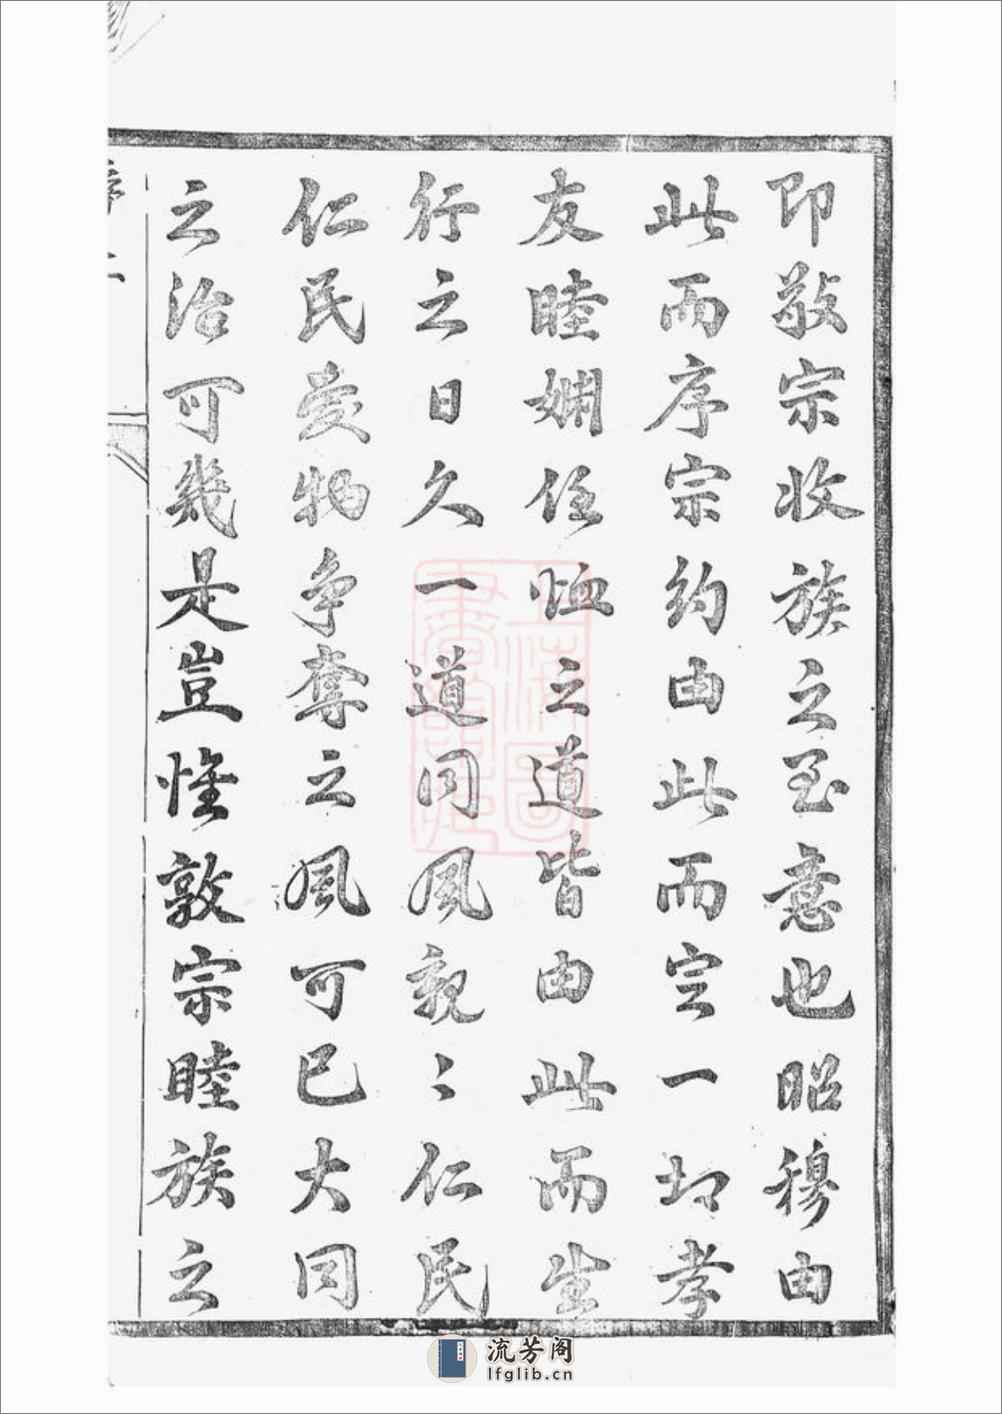 即敬宗收族之至意也昭穆由
此而序宗約由此而定一切孝
友睦婣任恤之道皆由此而生
行之日久一道同風親〻仁民
仁民愛物争奪之風可已大同
之治可幾是豈惟敦宗睦族之
序 二
上海圖書館藏
流芳阁
lfglib.cn